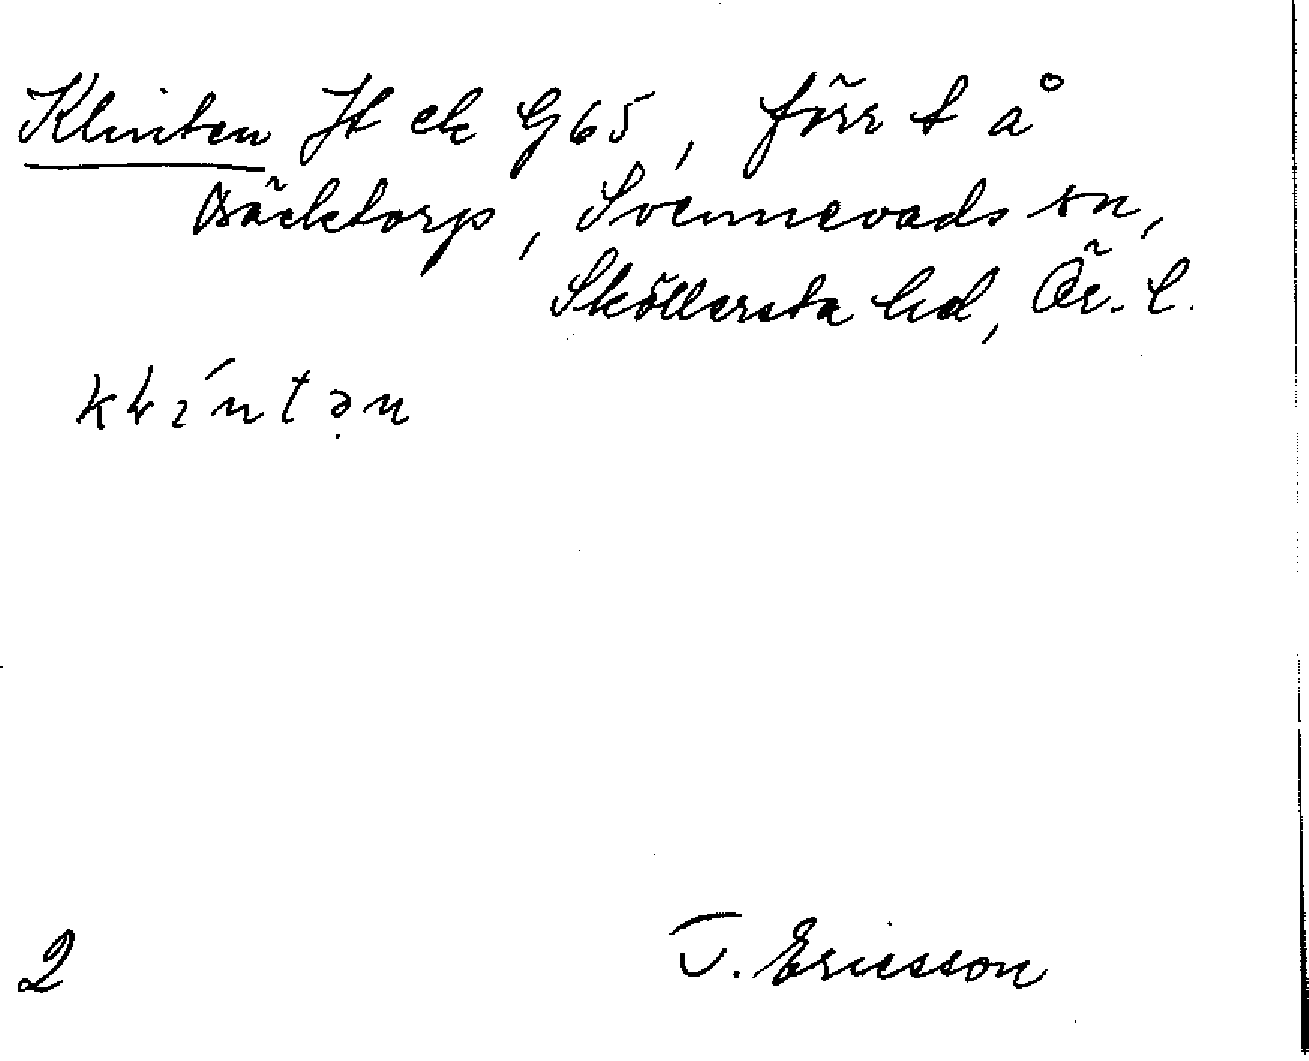 Klinten Jt ek G65, förr t å
Bäcktorp, Svennevads sn,
Sköllersta hd, Ör. l.
klíntən
2
T. Ericsson